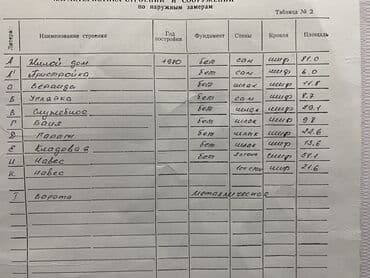 ХАРАКТЕРИСТИКА СТРОЕНИЙ И СООРУЖЕНИЙ
по наружным замерам
Таблица № 2
Литера Наименование строения Год постройки Фундамент Стены Кровля Площадь
А Жилой дом 1980 бет сам шиф 81.0
А' Пристройка бет сам шиф 6.0
а Веранда бет шлак шиф 11.8
Б Времянка бет сам шиф
В Служебное бет шлак шиф
Г Баня бет шлак шиф 9.8
Д Гараж бет шлак шиф 22.6
Е Кладовая бет шлак шиф 13.6
И Навес бет шиф
К Навес шиф 21.6
I Ворота металлические